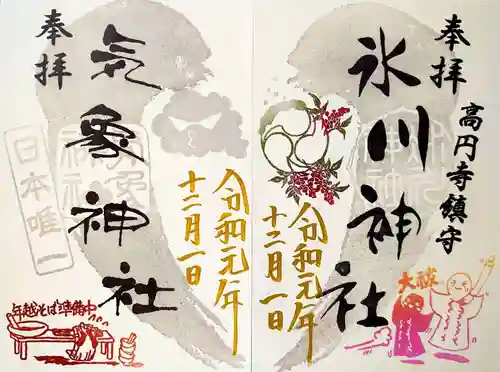 奉拝
氷川神社
高円寺鎮守
令和元年
十二月一日
大祓
奉拝
気象神社
日本唯一
令和元年
十二月一日
年越そば準備中